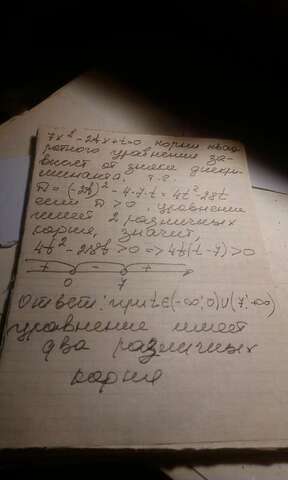 7x² - 2tx + t = 0 корни квад
ратного уравнения за-
висят от знака дискри-
минанта. т.е.
D = (-2t)² - 4·7·t = 4t² - 28t
если D > 0 уравнение
имеет 2 различных
корня, значит,
4t² - 28t > 0 => 4t(t - 7) > 0
+ - +
0 7
Ответ: при t∈(-∞; 0)∪(7; ∞)
уравнение имеет
два различных
корня